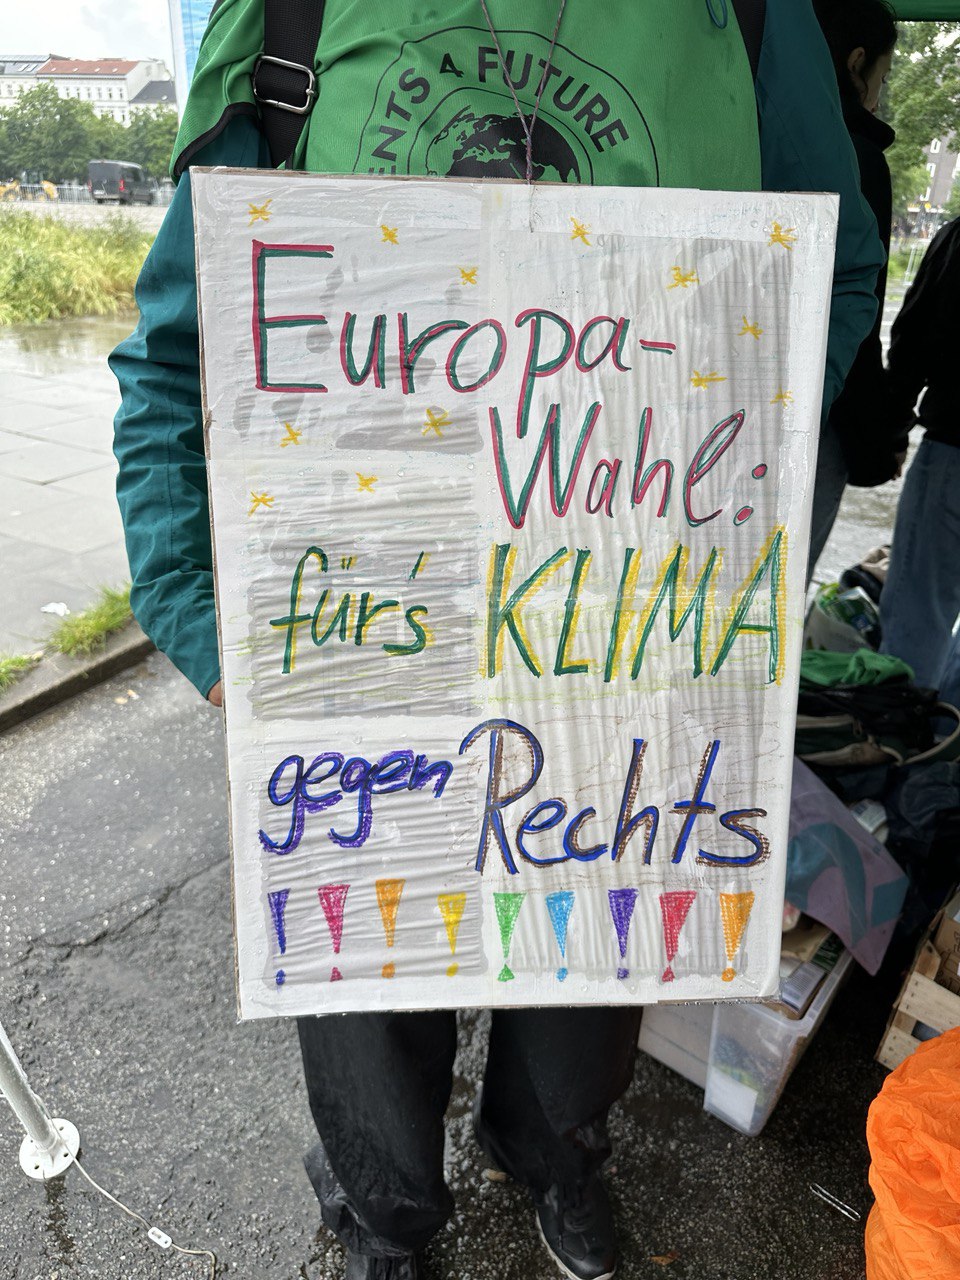 ENTS 4 FUTURE
Europa-
Wahl:
für's KLIMA
gegen Rechts
! ! ! ! ! ! ! ! !